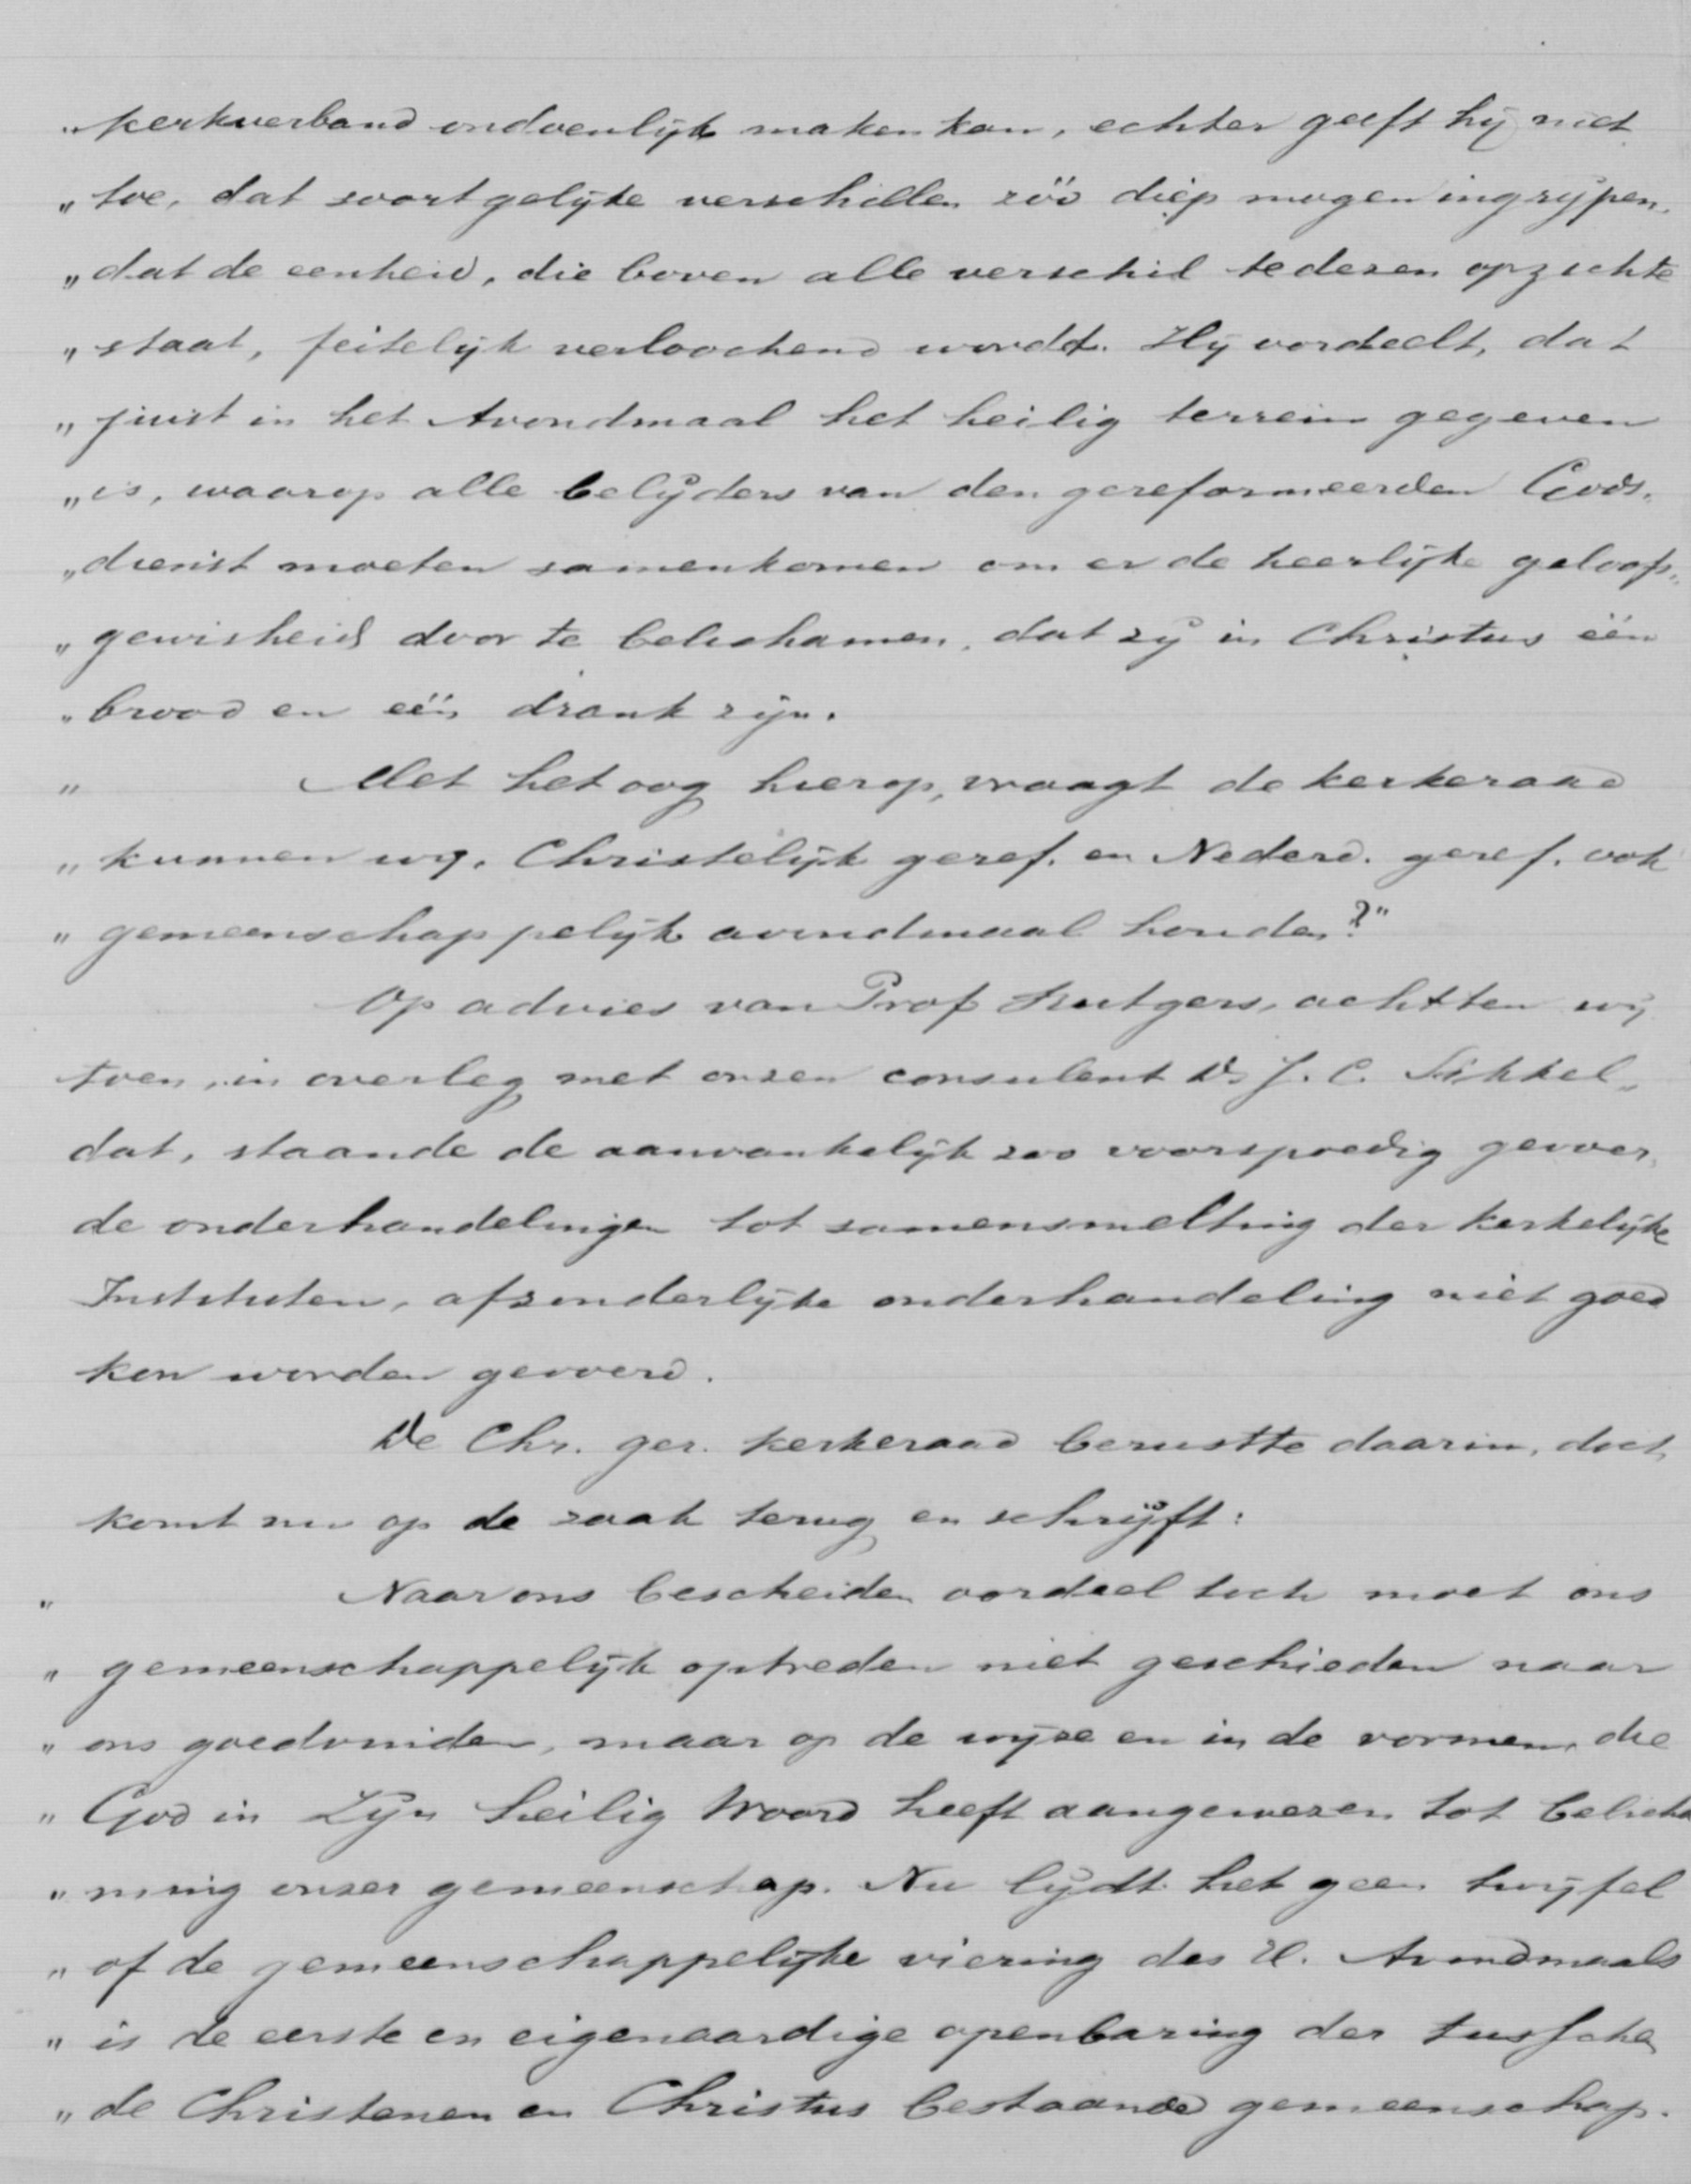 „kerkverband ondoenlijk maken kan, echter geeft hij niet
„toe, dat soortgelijke verschillen zóó diep mogen ingrijpen,
„dat de eenheid, die boven alle verschil te dezen opzichte
„staat, feitelijk verloochend wordt. Hij oordeelt, dat
„juist in het Avondmaal het heilig terrein gegeven
„is, waarop alle belijders van den gereformeerden Gods„
„dienst moeten samenkomen om er de heerlijke geloofs„
„gewisheid door te belichamen, dat zij in Christus één
„brood en één drank zijn.
„ Met het oog hierop, vraagt de kerkeraad
„kunnen wij, Christelijk geref. en Nederd. geref. ook
„gemeenschappelijk avondmaal houden?"
Op advies van Prof Rutgers, achtten wij
toen, in overleg met onzen consulent Ds J. C. Sikkel,
dat, staande de aanvankelijk zoo voorspoedig gevoer„
de onderhandelingen tot samensmelting der kerkelijke
Instituten, afzonderlijke onderhandeling niet goed
kon worden gevoerd.
De Chr. ger. kerkeraad berustte daarin, doch
komt nu op de zaak terug en schrijft:
„ Naar ons bescheiden oordeel toch moet ons
„gemeenschappelijk optreden niet geschieden naar
„ons goedvinden, maar op de wijze en in de vormen, die
„God in Zijn heilig Woord heeft aangewezen tot belicha
„ming onzer gemeenschap. Nu lijdt het geen twijfel
„of de gemeenschappelijke viering des H. Avondmaals
„is de eerste en eigenaardige openbaring der tusschen
„de Christenen en Christus bestaande gemeenschap.